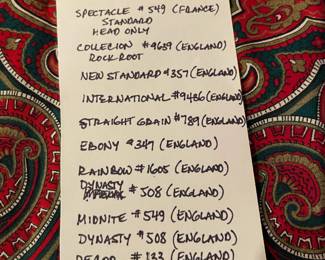 SPECTACLE #549 (FRANCE)
STANDARD
HEAD ONLY
COLLECION #4639 (ENGLAND)
ROCK ROOT
NEW STANDARD #357 (ENGLAND)
INTERNATIONAL #9486 (ENGLAND)
STRAIGHT GRAIN #789 (ENGLAND)
EBONY #347 (ENGLAND)
RAINBOW #1605 (ENGLAND)
DYNASTY
#508 (ENGLAND)
MIDNITE #549 (ENGLAND)
DYNASTY #508 (ENGLAND)
#133 (ENGLAND)